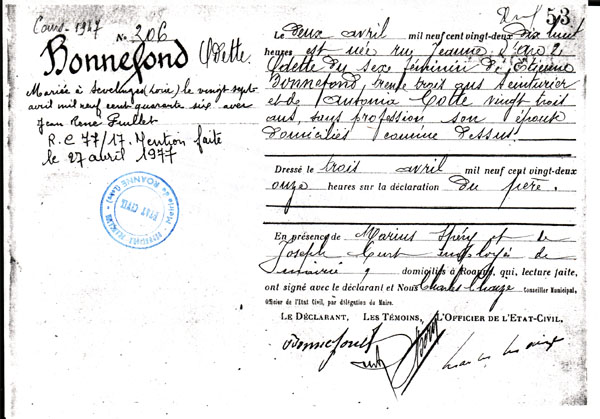 53
Le deux avril mil neuf cent vingt-deux dix huit
heures est née rue Jeanne d'Arc 2
Odette du sexe féminin de Etienne
Bonnefond, trente trois ans teinturier
et de Antonia Cotte vingt trois
ans, sans profession son épouse
domiciliés comme dessus.
Dressé le trois avril mil neuf cent vingt-deux
onze heures sur la déclaration du père.
En présence de Marius Spéry et de
Joseph Curt employés de
mairie domiciliés à Roanne, qui, lecture faite,
ont signé avec le déclarant et Nous Charles Chaize Conseiller Municipal,
Officier de l'Etat Civil, par délégation du Maire.
LE DÉCLARANT, LES TÉMOINS, L'OFFICIER DE L'ETAT-CIVIL.
Bonnefond
1947
N° 306
Bonnefond Odette.
Mariée à Sevelinges (Loire) le vingt sept
avril mil neuf cent quarante six avec
Jean René Guillet
R.C 77/17. Mention faite
le 27 avril 1977
ROANNE (Loire)
ETAT CIVIL